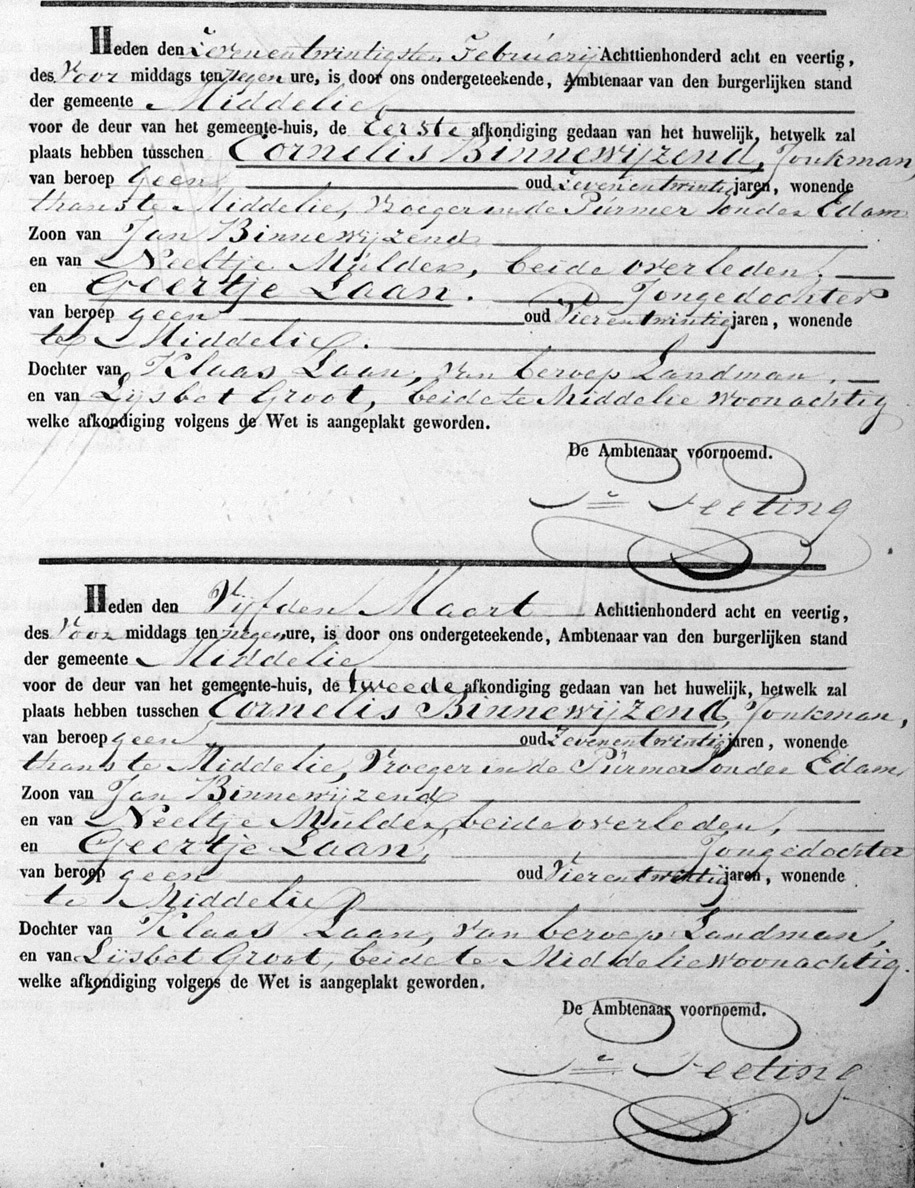 Heden den Zevenentwintigsten Februarij Achttienhonderd acht en veertig,
des Voor middags ten negen ure, is door ons ondergeteekende, Ambtenaar van den burgerlijken stand
der gemeente Middelie
voor de deur van het gemeente-huis, de Eerste afkondiging gedaan van het huwelijk, hetwelk zal
plaats hebben tusschen Cornelis Binnewijzend, Jonkman,
van beroep geen oud Zevenentwintig jaren, wonende
thans te Middelie, Vroeger in de Purmer onder Edam
Zoon van Jan Binnewijzend
en van Neeltje Mulder, beide overleden,
en Geertje Laan. Jongedochter
van beroep geen oud Vierentwintig jaren, wonende
te Middelie.
Dochter van Klaas Laan, van beroep Landman,
en van Lijsbet Groot, beide te Middelie woonachtig
welke afkondiging volgens de Wet is aangeplakt geworden.
De Ambtenaar voornoemd.
Teeting
Heden den Vijfden Maart Achttienhonderd acht en veertig,
des Voor middags ten negen ure, is door ons ondergeteekende, Ambtenaar van den burgerlijken stand
der gemeente Middelie
voor de deur van het gemeente-huis, de tweede afkondiging gedaan van het huwelijk, hetwelk zal
plaats hebben tusschen Cornelis Binnewijzend, Jonkman,
van beroep geen oud Zevenentwintig jaren, wonende
thans te Middelie, Vroeger in de Purmer onder Edam
Zoon van Jan Binnewijzend
en van Neeltje Mulder, beide overleden,
en Geertje Laan, Jongedochter
van beroep geen oud Vierentwintig jaren, wonende
te Middelie
Dochter van Klaas Laan, van beroep Landman,
en van Lijsbet Groot, beide te Middelie woonachtig.
welke afkondiging volgens de Wet is aangeplakt geworden.
De Ambtenaar voornoemd.
Teeting